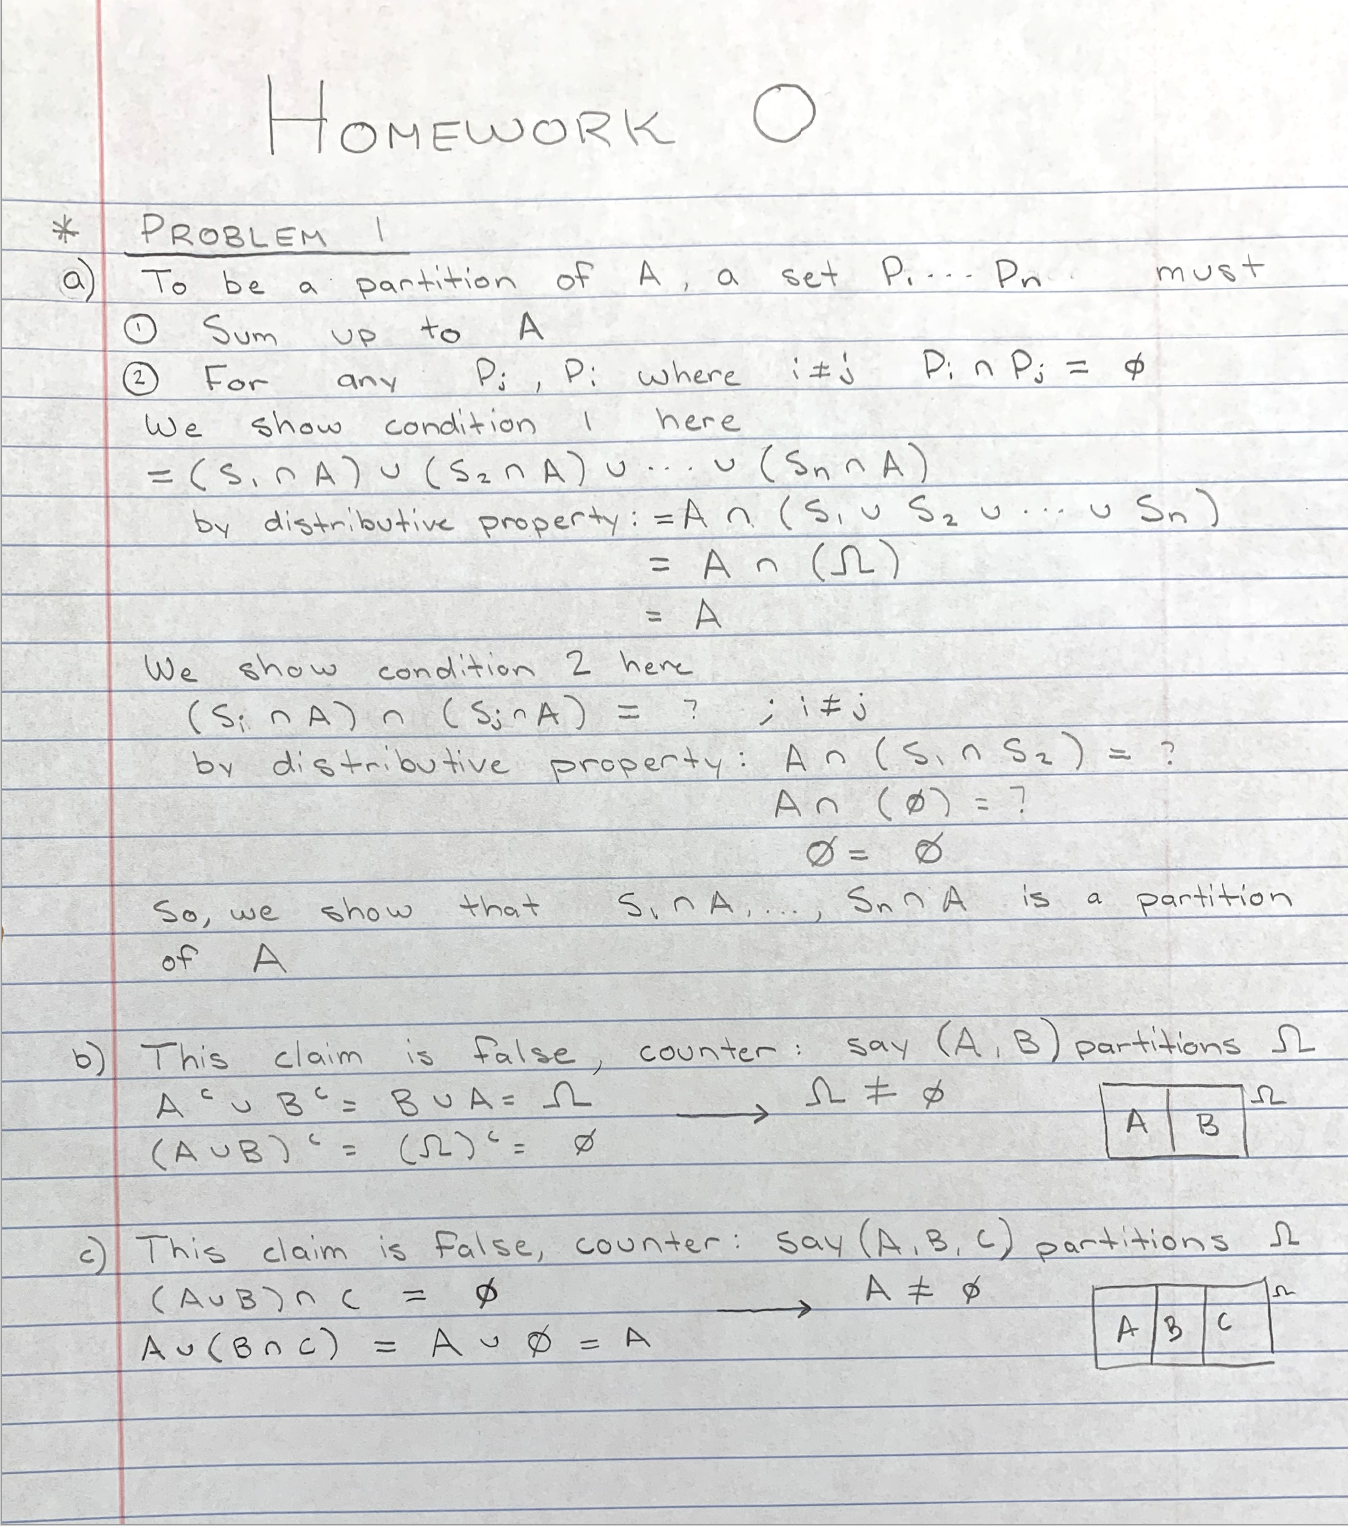 HOMEWORK 0
* PROBLEM 1
a) To be a partition of A, a set P₁ ... Pn must
① Sum up to A
② For any Pj, Pi where i≠j Pi ∩ Pj = ∅
We show condition 1 here
= (S₁ ∩ A) ∪ (S₂ ∩ A) ∪ ... ∪ (Sn ∩ A)
by distributive property: = A ∩ (S₁ ∪ S₂ ∪ ... ∪ Sn)
= A ∩ (Ω)
= A
We show condition 2 here
(Si ∩ A) ∩ (Sj ∩ A) = ? ; i≠j
by distributive property: A ∩ (S₁ ∩ S₂) = ?
A ∩ (∅) = ?
∅ = ∅
So, we show that S₁ ∩ A, ..., Sn ∩ A is a partition
of A
b) This claim is false, counter: say (A, B) partitions Ω
Aᶜ ∪ Bᶜ = B ∪ A = Ω → Ω ≠ ∅
(A ∪ B)ᶜ = (Ω)ᶜ = ∅
A B Ω
c) This claim is false, counter: say (A, B, C) partitions Ω
(A ∪ B) ∩ C = ∅ → A ≠ ∅
A ∪ (B ∩ C) = A ∪ ∅ = A
A B C Ω